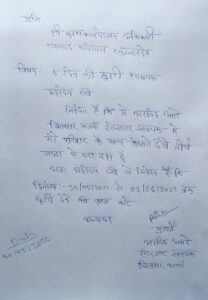 प्रति
श्री मुख्यकार्यपालन अधिकारी
जनपद पंचायत
विषय 5 दिन की छुट्टी
महोदय जी
निवेदन है कि मैं अरविंद
रोजगार सहायक
मेरे परिवार के साथ वैष्णो देवी तीर्थ
यात्रा पे जा रहा हूं
अतः महोदय जी से निवेदन है कि
दिनांक - 30/05/2022 से 03/06/2022 तक
छुट्टी देने की कृपा करे
धन्यवाद
प्रार्थी
अरविंद
रोजगार सहायक
Date
30/05/2022